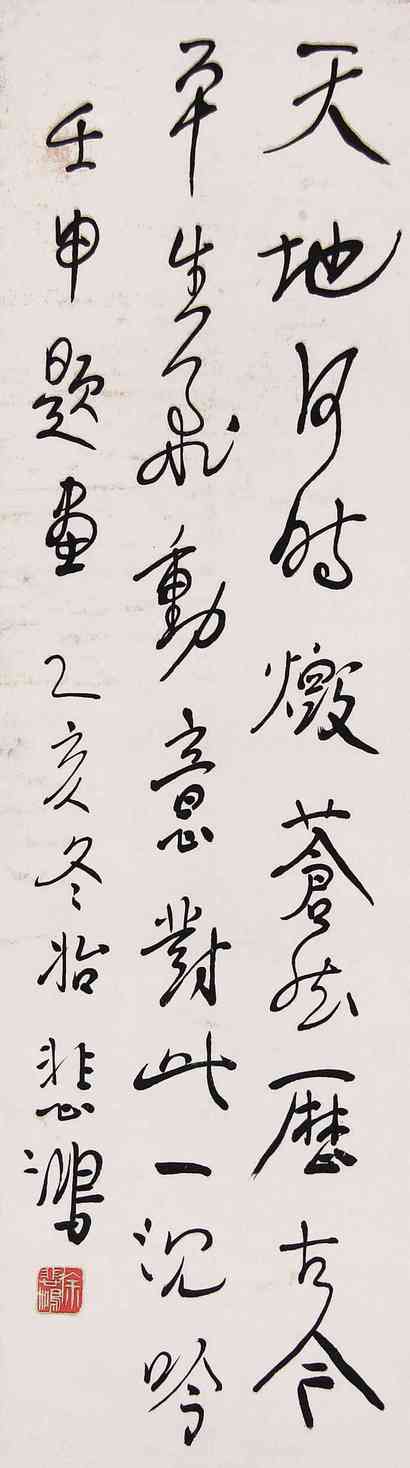 天地何時燬蒼然歷古今
平生飛動意對此一沉吟
壬申題畫 乙亥冬始 悲鴻
徐悲鴻